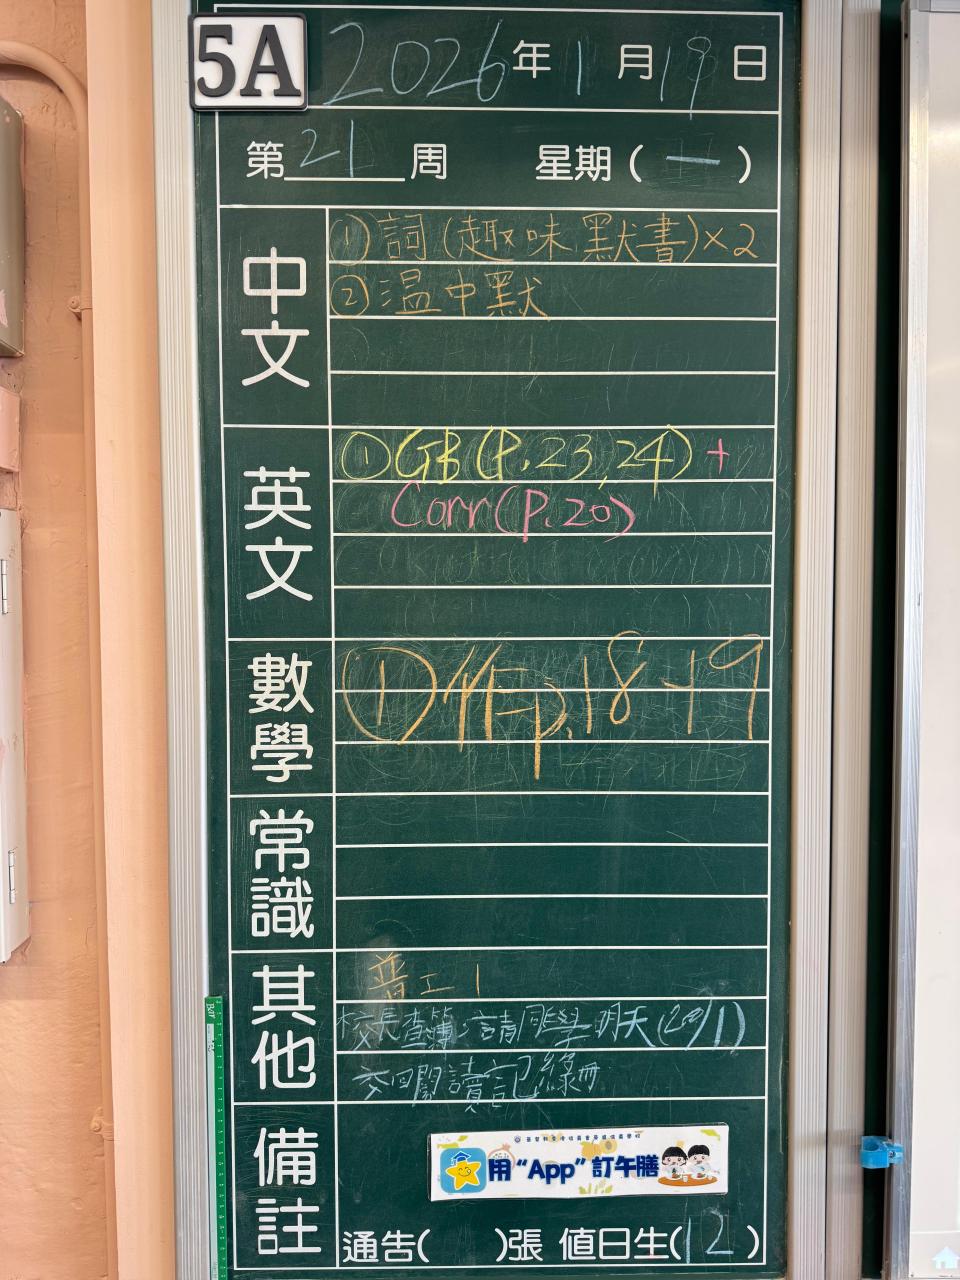 5A 2026年1月19日
第21周 星期(一)
中文
①詞(趣味默書)×2
②温中默
英文
①GB(P.23,24)+
Corr(P.20)
數學
①作p.18-19
常識
其他
普工1
校長查簿:請同學明天(20/1)
交回閱讀記錄冊
備註
用“App”訂午膳
通告( )張 值日生(12)